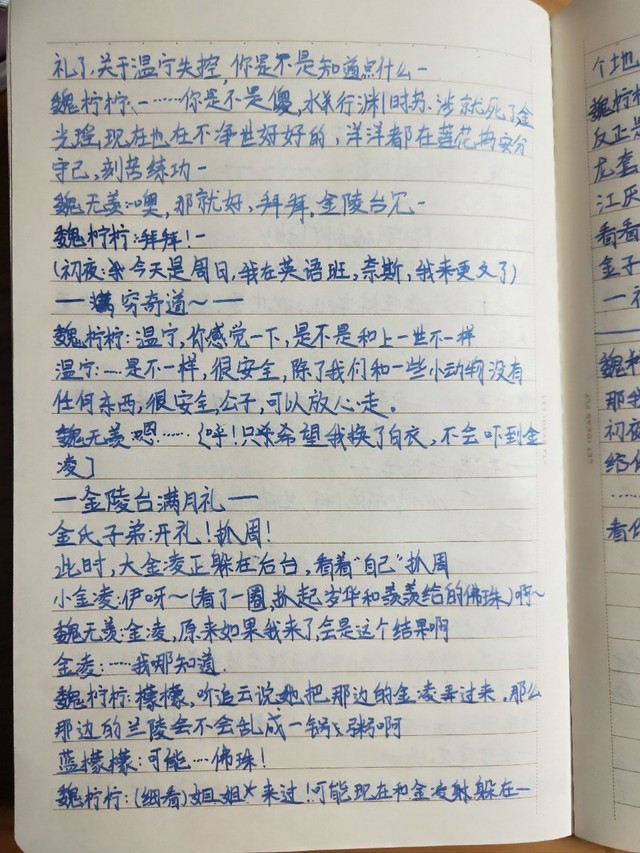 礼了,关于温宁失控,你是不是知道点什么-
魏柠柠:-……你是不是傻,水行渊时苏涉就死了金
光瑶,现在也在不净世好好的,洋洋都在莲花坞安分
守己,刻苦练功-
魏无羡:-噢,那就好,拜拜,金陵台见-
魏柠柠:拜拜!-
(初夜:我今天是周日,我在英语班,奈斯,我来更文了)
一穷奇道～一
魏柠柠:温宁,你感觉一下,是不是和上一世不一样
温宁:....是不一样,很安全,除了我们和一些小动物没有
任何东西,很安全,公子,可以放心走。
魏无羡:嗯……〔呼!只希望我换了白衣,不会吓到金
凌〕
一金陵台满月礼一
金氏子弟:开礼!抓周!
此时,大金凌正躲在后台,看着"自己"抓周
小金凌:伊呀～(看了一圈,抓起岁华和羡羡给的佛珠)啊～
魏无羡:金凌,原来如果我来了,会是这个结果啊
金凌:……我哪知道
魏柠柠:檬檬,听追云说她把那边的金凌弄过来,那么
那边的兰陵会不会乱成一锅粥啊
蓝檬檬:可能....佛珠!
魏柠柠:(细看)姐姐来过!可能现在和金凌躲在一
个地
魏柠柠
反正是
龙套
江厌
看看
金子
一
魏柠
那我
初夜
给你
……
看你
LET IDEAS FLY